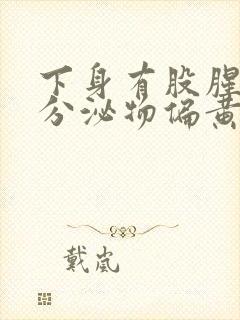 下身有股腥
分泌物偏黄
戴岚